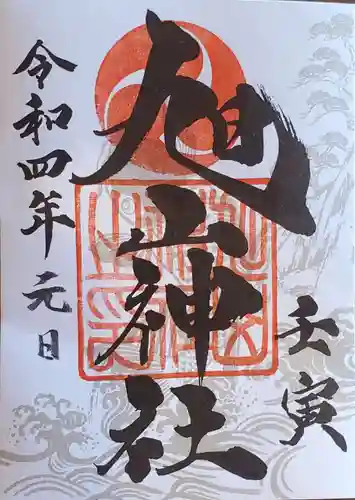 壬寅
旭山神社
令和四年元日